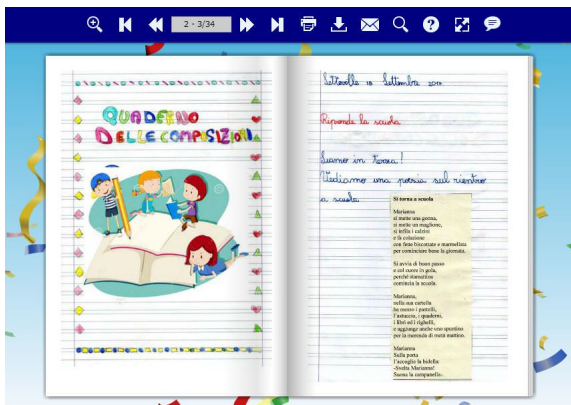 2 - 3/34
QUADERNO
DELLE COMPOSIZIONI
Settembre
Riprende la scuola
Siamo in terza!
Vediamo una poesia sul rientro
a scuola
Si torna a scuola
Marianna
si mette una gonna,
si mette un maglione,
si infila i calzini
e fa colazione
con fette biscottate e marmellata
per cominciare bene la giornata.
Si avvia di buon passo
e col cuore in gola,
perché stamattina
comincia la scuola.
Marianna,
nella sua cartella
ha messo i pastelli,
l'astuccio, i quaderni,
i libri ed i righelli,
e aggiunge anche uno spuntino
per la merenda di metà mattino.
Marianna
Sulla porta
l'accoglie la bidella:
-Svelta Marianna!
Suona la campanella-.